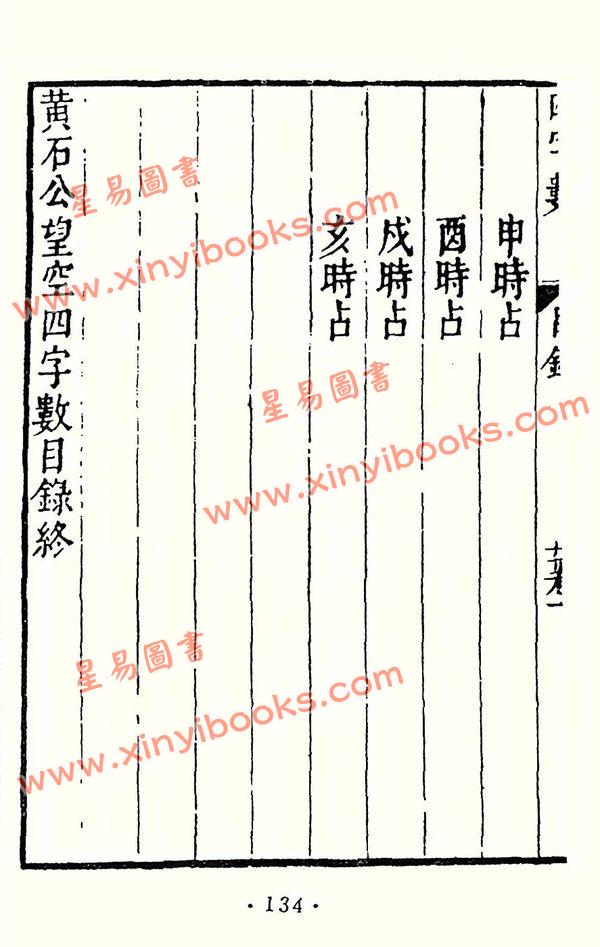 四字數 目錄
申時占
酉時占
戌時占
亥時占
黃石公望空四字數目錄終
星易圖書
www.xinyibooks.com
星易圖書
www.xinyibooks.com
星易圖書
www.xinyibooks.com
·134·